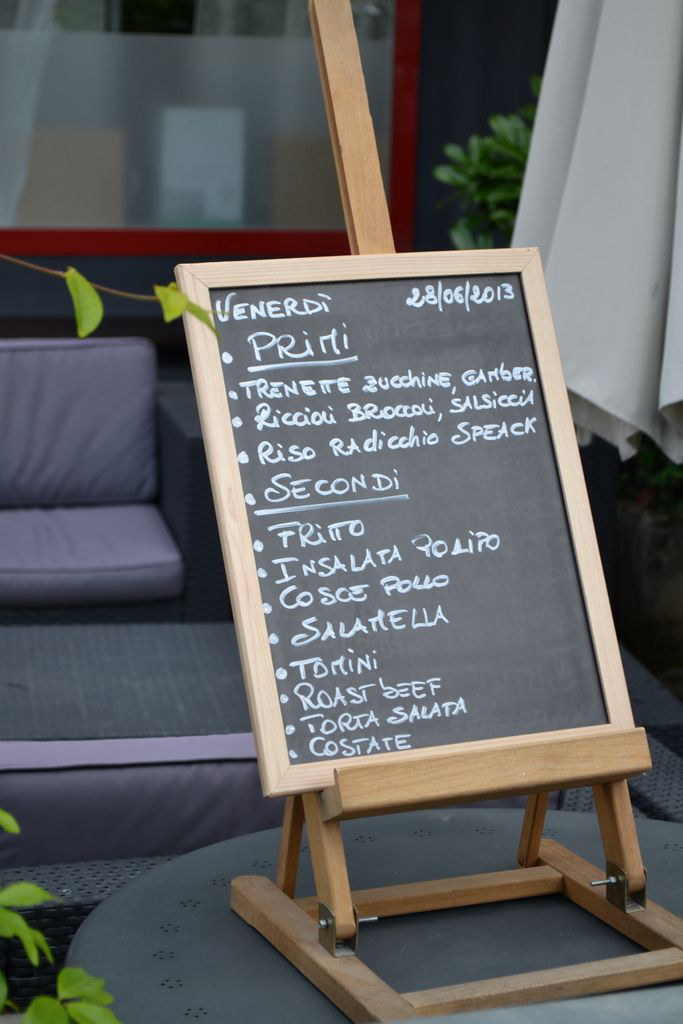 VENERDÌ 28/06/2013
• PRIMI
• TRENETTE ZUCCHINE, GAMBER.
• RICCIOLI BROCCOLI, SALSICCIA
• RISO RADICCHIO SPEACK
• SECONDI
• FRITTO
• INSALATA POLIPO
• COSCE POLLO
• SALAMELLA
• TOMINI
• ROAST BEEF
• TORTA SALATA
• COSTATE